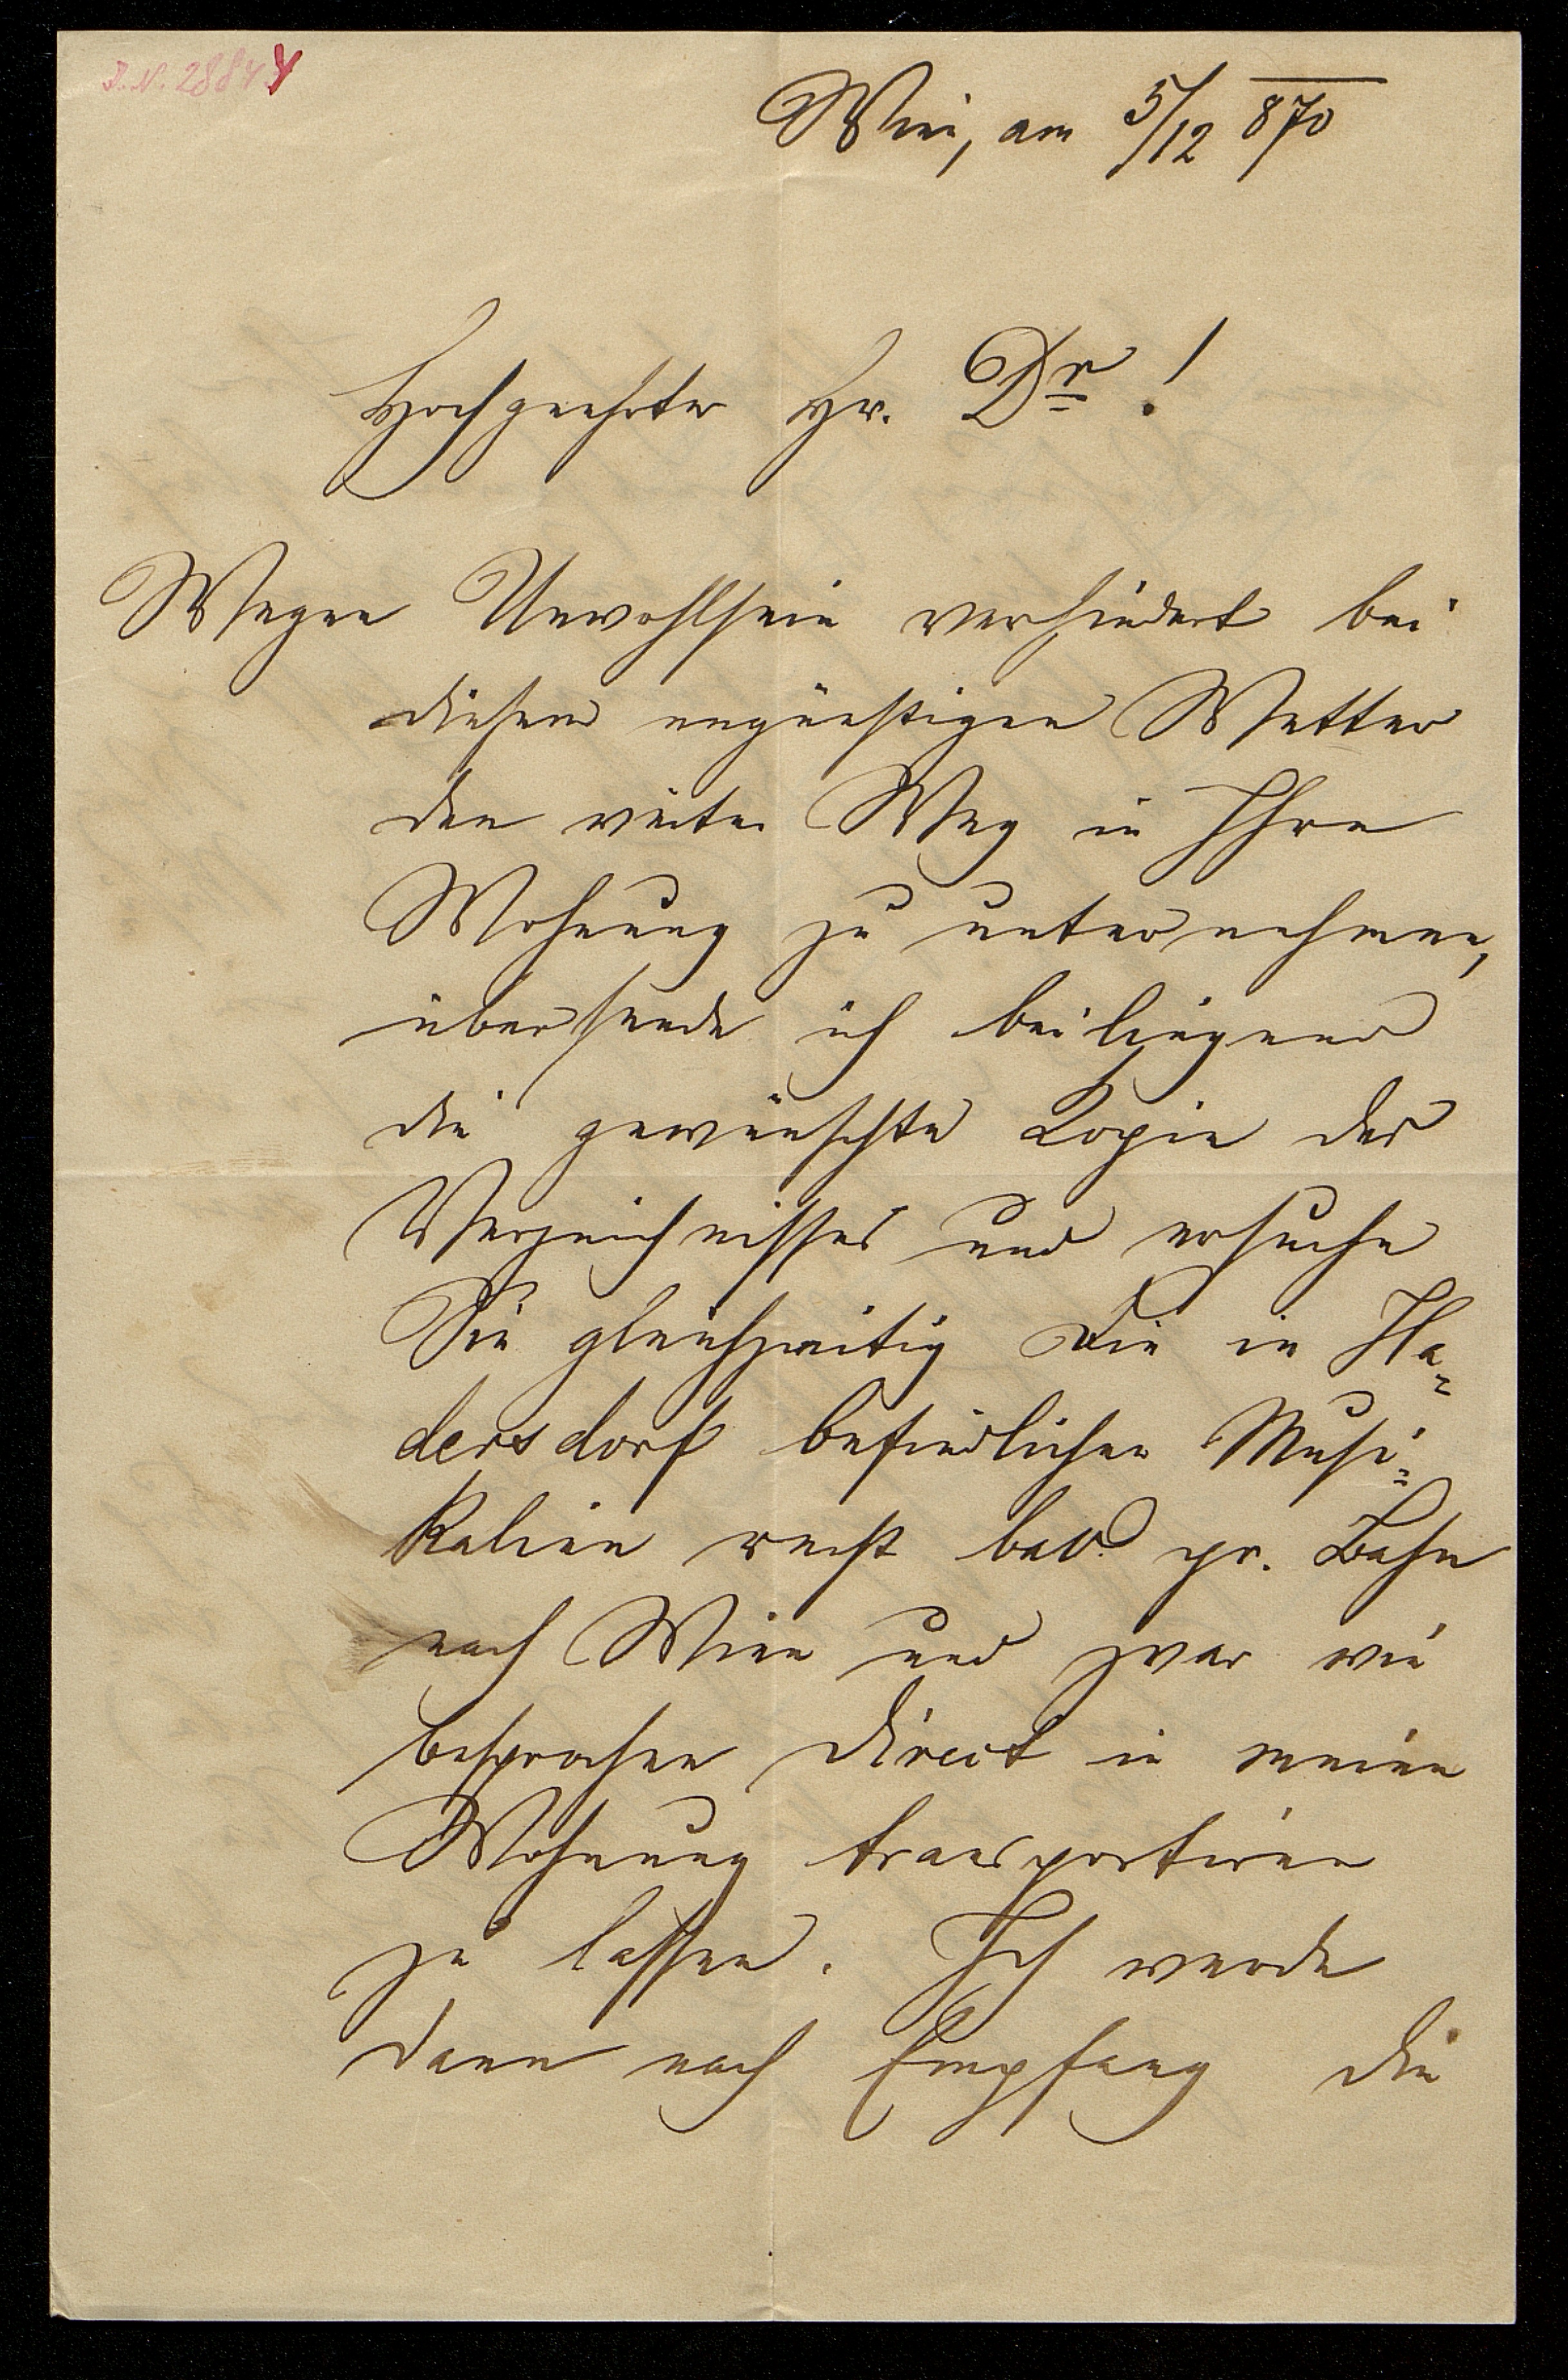 I.N. 28844
Wien, am 5/12 870
Hochgeehrter Hr. Dr!
Wegen Unwohlsein verhindert bei
diesem ungünstigen Wetter
den weiten Weg in Ihre
Wohnung zu unternehmen,
übersende ich beiliegend
die gewünschte Copie des
Verzeichnisses und ersuche
Sie gleichzeitig die in Ha=
dersdorf befindlichen Musi=
kalien recht bald pr. Bahn
nach Wien und zwar wie
besprochen direct in meine
Wohnung transportiren
zu lassen. Ich werde
dann nach Empfang die